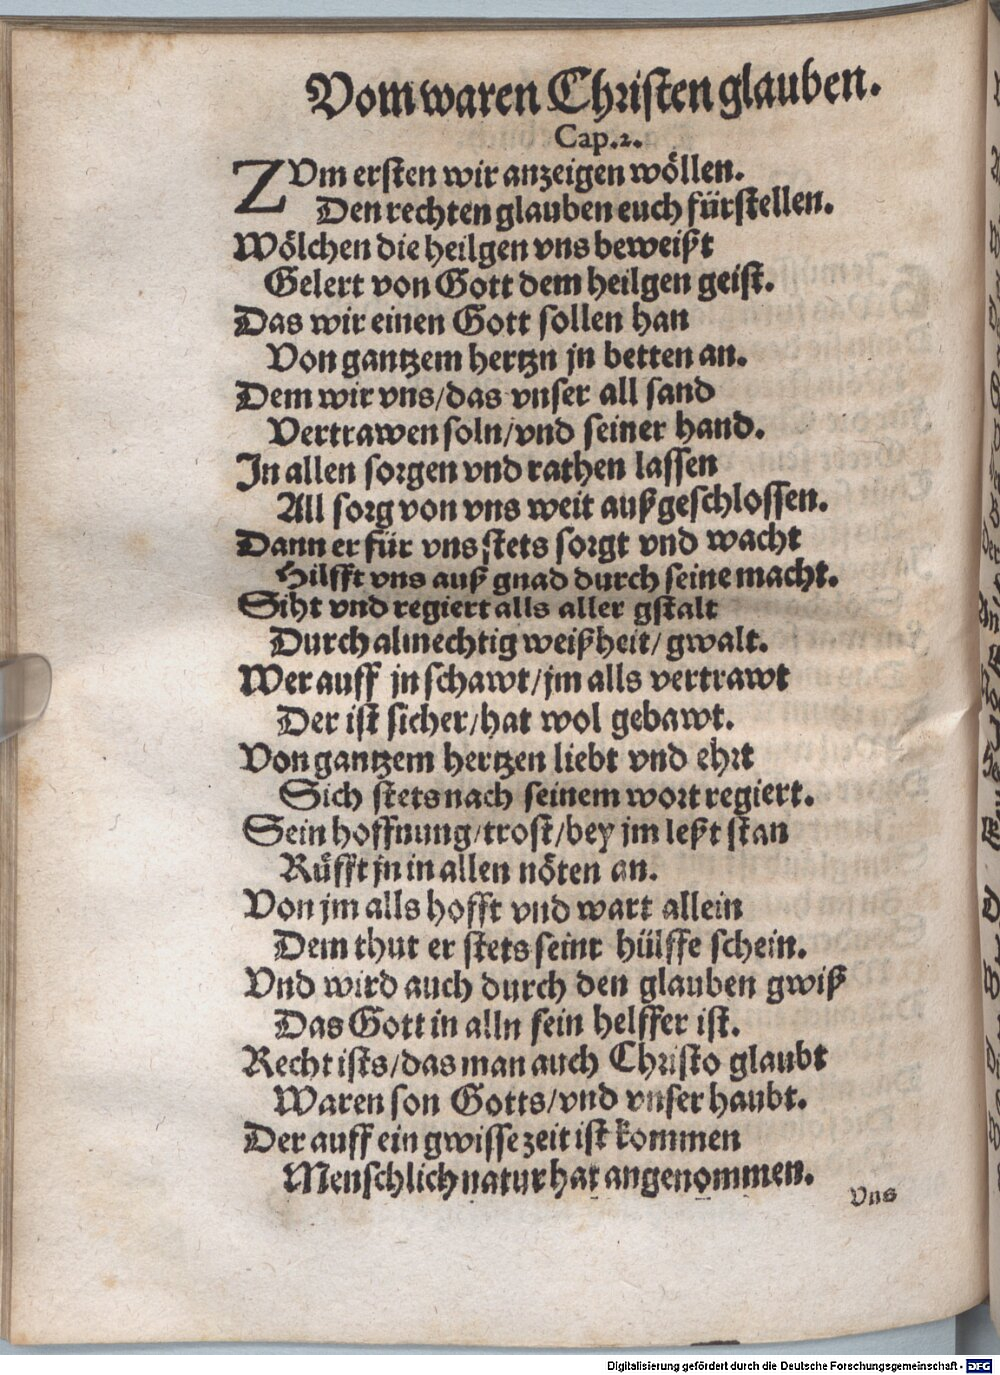 Vom waren Christen glauben.
Cap.2.
ZVm ersten wir anzeigen wöllen.
Den rechten glauben euch fürstellen.
Wölchen die heilgen vns beweißt
Gelert von Gott dem heilgen geist.
Das wir einen Gott sollen han
Von gantzem hertzn jn betten an.
Dem wir vns/das vnser all sand
Vertrawen soln/vnd seiner hand.
In allen sorgen vnd rathen lassen
All sorg von vns weit außgeschlossen.
Dann er für vns stets sorgt vnd wacht
Hilfft vns auß gnad durch seine macht.
Siht vnd regiert alls aller gstalt
Durch almechtig weißheit/ gwalt.
Wer auff jn schawt/jm alls vertrawt
Der ist sicher/hat wol gebawt.
Von gantzem hertzen liebt vnd ehrt
Sich stets nach seinem wort regiert.
Sein hoffnung/trost/bey jm leßt stan
Rüfft jn in allen nöten an.
Von jm alls hofft vnd wart allein
Dem thut er stets seinr hülffe schein.
Vnd wird auch durch den glauben gwiß
Das Gott in alln sein helffer ist.
Recht ists/das man auch Christo glaubt
Waren son Gotts/vnd vnser haubt.
Der auff ein gwisse zeit ist kommen
Menschlich natur hat angenommen.
Vns
Digitalisierung gefördert durch die Deutsche Forschungsgemeinschaft - DFG